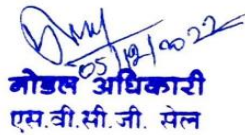 05/12/2022
नोडल अधिकारी
एस.वी.सी.जी. सेल